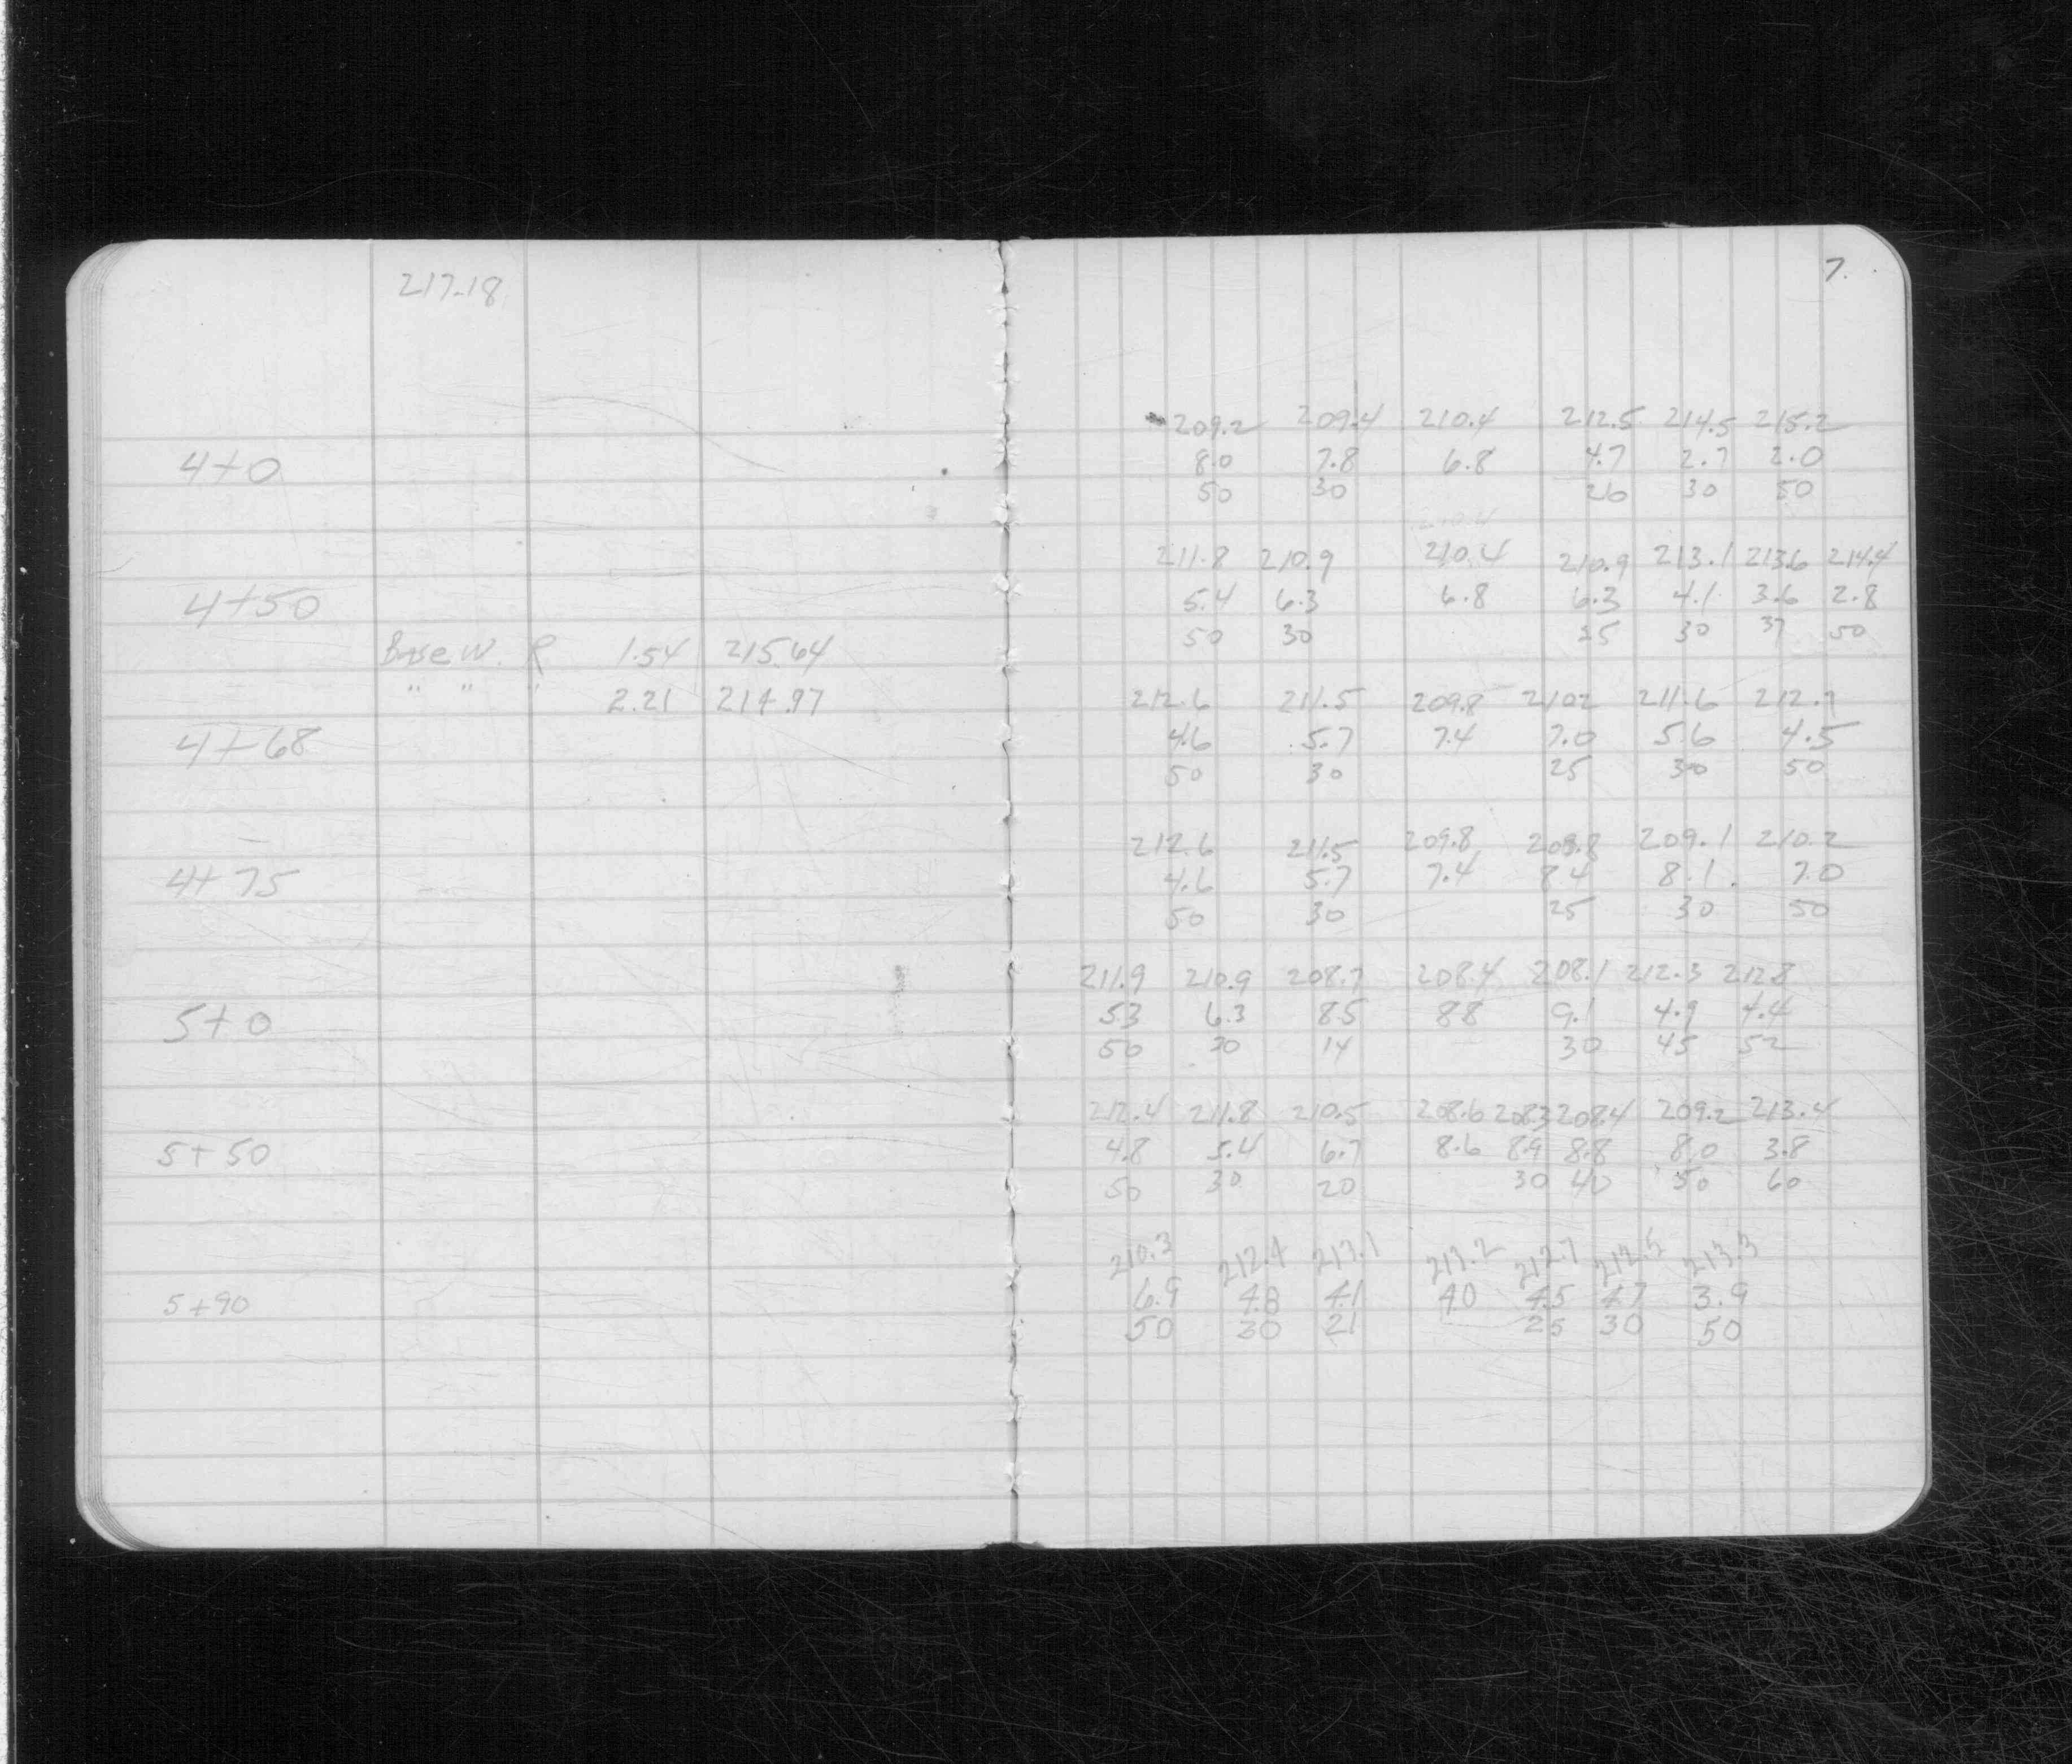 217.18
7.
209.2 209.4 210.4 212.5 214.5 215.2
4+0 8.0 7.8 6.8 4.7 2.7 2.0
50 30 26 30 50
211.8 210.9 210.4 210.9 213.1 213.6 214.4
4+50 5.4 6.3 6.8 6.3 4.1 3.6 2.8
50 30 25 30 37 50
Base W. R 1.54 215.64
" " " 2.21 214.97
212.6 211.5 209.8 210.2 211.6 212.7
4+68 4.6 5.7 7.4 7.0 5.6 4.5
50 30 25 30 50
212.6 211.5 209.8 208.8 209.1 210.2
4+75 4.6 5.7 7.4 8.4 8.1 7.0
50 30 25 30 50
211.9 210.9 208.7 208.4 208.1 212.3 212.8
5+0 53 6.3 85 88 9.1 4.9 4.4
50 30 14 30 45 52
212.4 211.8 210.5 208.6 208.3 208.4 209.2 213.4
5+50 4.8 5.4 6.7 8.6 8.9 8.8 8.0 3.8
50 30 20 30 40 50 60
210.3 212.4 213.1 213.2 212.7 212.5 213.3
5+90 6.9 4.8 4.1 40 4.5 4.7 3.9
50 30 21 25 30 50